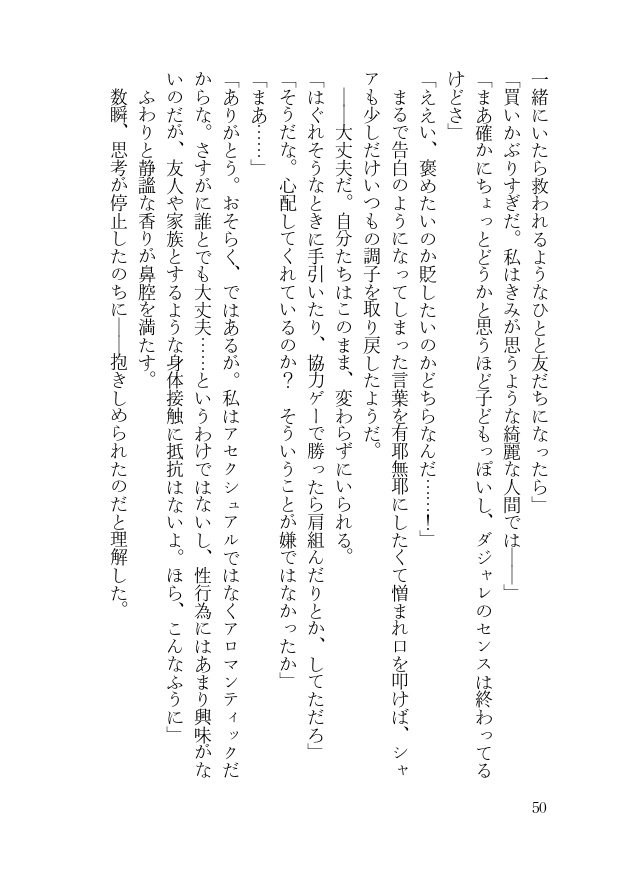 一緒にいたら救われるようなひとと友だちになったら」
「買いかぶりすぎだ。私はきみが思うような綺麗な人間では――」
「まあ確かにちょっとどうかと思うほど子どもっぽいし、ダジャレのセンスは終わってる
けどさ」
「ええい、褒めたいのか貶したいのかどちらなんだ……！」
　まるで告白のようになってしまった言葉を有耶無耶にしたくて憎まれ口を叩けば、シャ
アも少しだけいつもの調子を取り戻したようだ。
　――大丈夫だ。自分たちはこのまま、変わらずにいられる。
「はぐれそうなときに手引いたり、協力ゲーで勝ったら肩組んだりとか、してただろ」
「そうだな。心配してくれているのか？　そういうことが嫌ではなかったか」
「まあ……」
「ありがとう。おそらく、ではあるが。私はアセクシュアルではなくアロマンティックだ
からな。さすがに誰とでも大丈夫……というわけではないし、性行為にはあまり興味がな
いのだが、友人や家族とするような身体接触に抵抗はないよ。ほら、こんなふうに」
　ふわりと静謐な香りが鼻腔を満たす。
　数瞬、思考が停止したのちに――抱きしめられたのだと理解した。
50